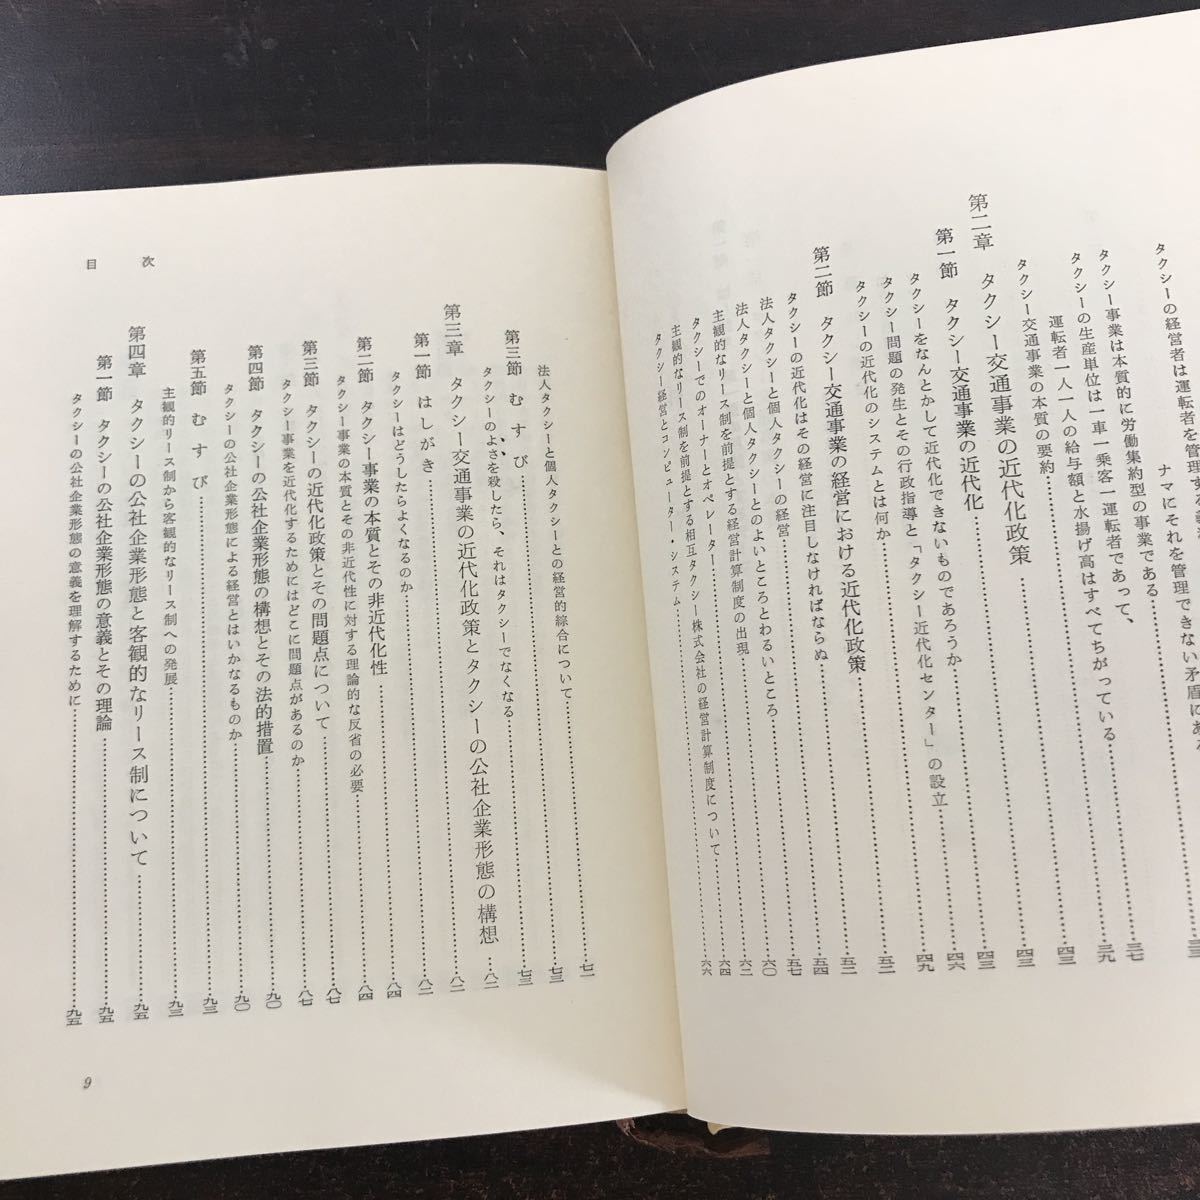 タクシーの経営者は運転者を管理する
ナマにそれを管理できない矛盾にある……三三
タクシー事業は本質的に労働集約型の事業である……三七
タクシーの生産単位は一車一乗客一運転者であって、
運転者一人一人の給与額と水揚げ高はすべてちがっている……三九
タクシー交通事業の本質の要約……四三
第二章 タクシー交通事業の近代化政策……四三
第一節 タクシー交通事業の近代化……四三
タクシーをなんとかして近代化できないものであろうか……四六
タクシー問題の発生とその行政指導と「タクシー近代化センター」の設立……四九
タクシーの近代化のシステムとは何か……五二
第二節 タクシー交通事業の経営における近代化政策……五二
タクシーの近代化はその経営に注目しなければならぬ……五四
法人タクシーと個人タクシーの経営……五七
法人タクシーと個人タクシーとのよいところとわるいところ……六〇
主観的なリース制を前提とする経営計算制度の出現……六二
タクシーでのオーナーとオペレーター……六四
主観的なリース制を前提とする相互タクシー株式会社の経営計算制度について……六六
タクシー経営とコンピューター・システム……六六
目次
法人タクシーと個人タクシーとの経営的綜合について……七一
第三節 むすび……七三
タクシーのよさを殺したら、それはタクシーでなくなる……七三
第三章 タクシー交通事業の近代化政策とタクシーの公社企業形態の構想……八二
第一節 はしがき……八二
タクシーはどうしたらよくなるのか……八二
第二節 タクシー事業の本質とその非近代化性……八四
タクシー事業の本質とその非近代性に対する理論的な反省の必要……八四
第三節 タクシーの近代化政策とその問題点について……八七
タクシー事業を近代化するためにはどこに問題点があるのか……八七
第四節 タクシーの公社企業形態の構想とその法的措置……九〇
タクシーの公社企業形態による経営とはいかなるものか……九〇
第五節 むすび……九三
主観的リース制から客観的なリース制への発展……九三
第四章 タクシーの公社企業形態と客観的なリース制について……九五
第一節 タクシーの公社企業形態の意義とその理論……九五
タクシーの公社企業形態の意義を理解するために……九五
9